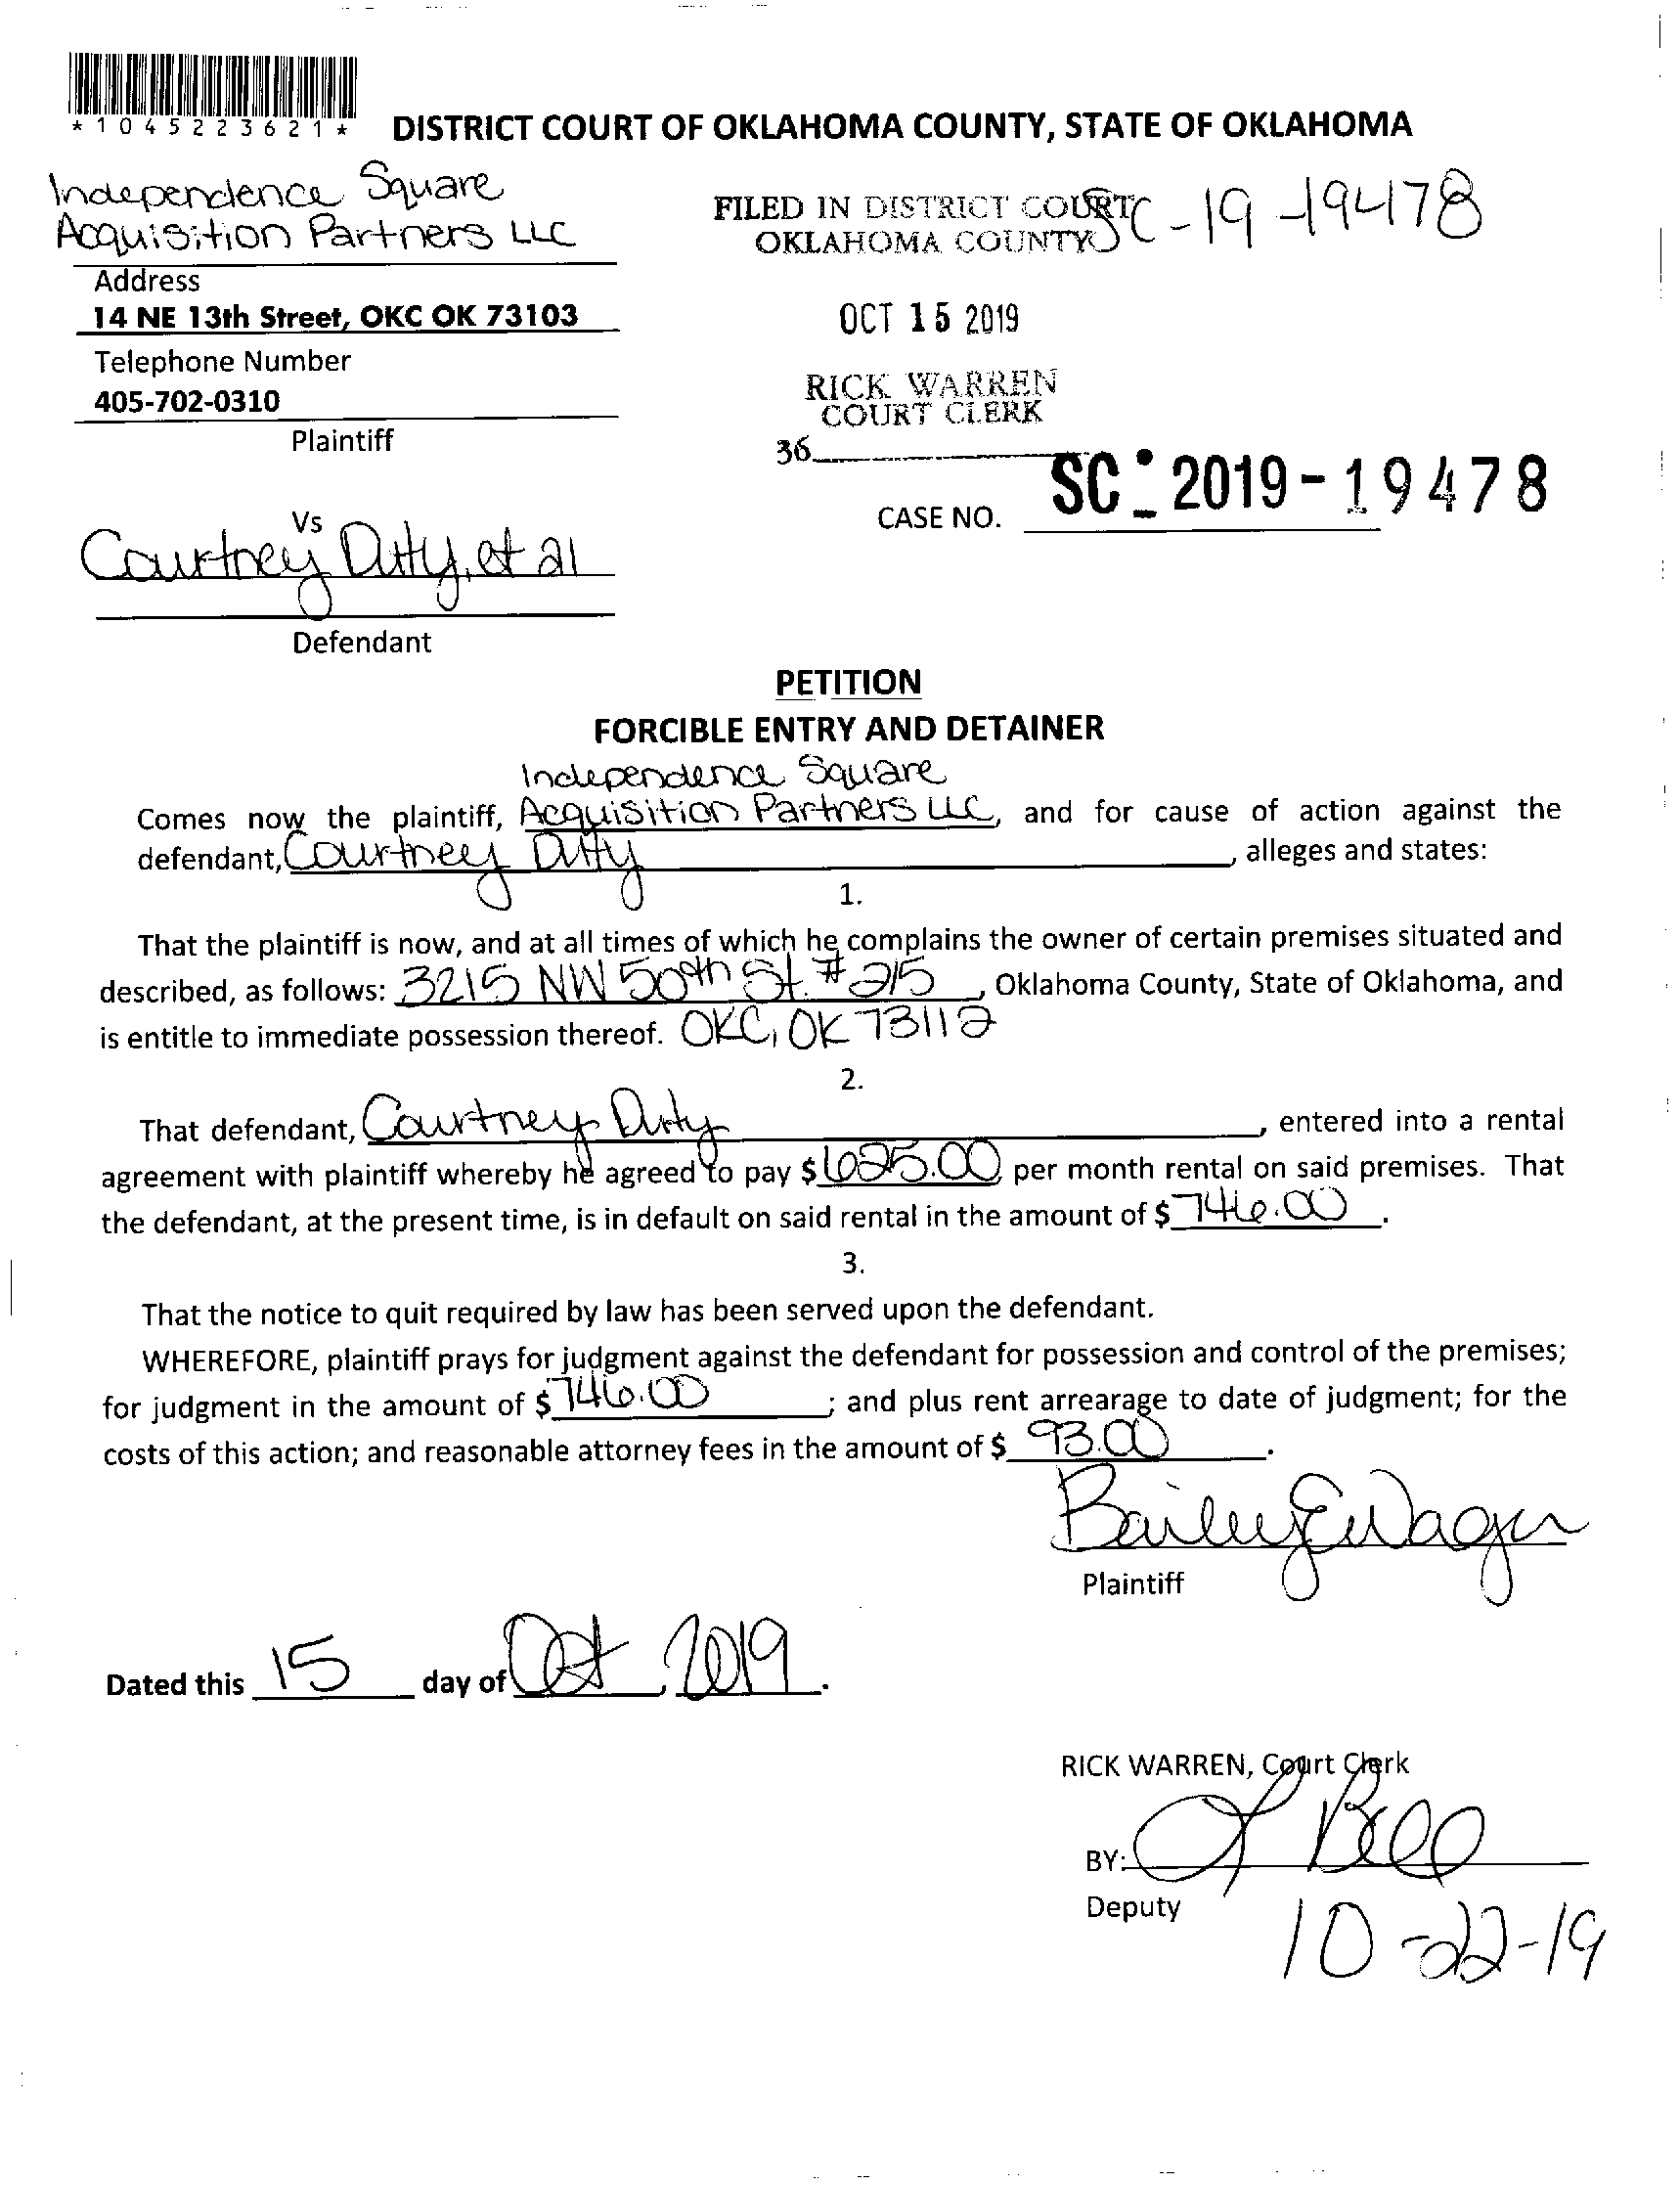 *1045223621*
DISTRICT COURT OF OKLAHOMA COUNTY, STATE OF OKLAHOMA
Independence Square
Acquisition Partners LLC
FILED IN DISTRICT COURT
OKLAHOMA COUNTY
SC-19-19478
Address
14 NE 13th Street, OKC OK 73103
OCT 15 2019
Telephone Number
405-702-0310
RICK WARREN
COURT CLERK
Plaintiff
36
SC-2019-19478
CASE NO.
Vs
Courtney Duty, et al
Defendant
PETITION
FORCIBLE ENTRY AND DETAINER
Independence Square
Comes now the plaintiff, Acquisition Partners LLC, and for cause of action against the
defendant, Courtney Duty, alleges and states:
1.
That the plaintiff is now, and at all times of which he complains the owner of certain premises situated and
described, as follows: 3215 NW 50th St. #215, Oklahoma County, State of Oklahoma, and
is entitle to immediate possession thereof. OKC, OK 73112
2.
That defendant, Courtney Duty, entered into a rental
agreement with plaintiff whereby he agreed to pay $625.00 per month rental on said premises. That
the defendant, at the present time, is in default on said rental in the amount of $746.00.
3.
That the notice to quit required by law has been served upon the defendant.
WHEREFORE, plaintiff prays for judgment against the defendant for possession and control of the premises;
for judgment in the amount of $746.00; and plus rent arrearage to date of judgment; for the
costs of this action; and reasonable attorney fees in the amount of $ 93.00.
Bailey E Wagner
Plaintiff
Dated this 15 day of Oct, 2019.
RICK WARREN, Court Clerk
BY: L Bell
Deputy
10-22-19